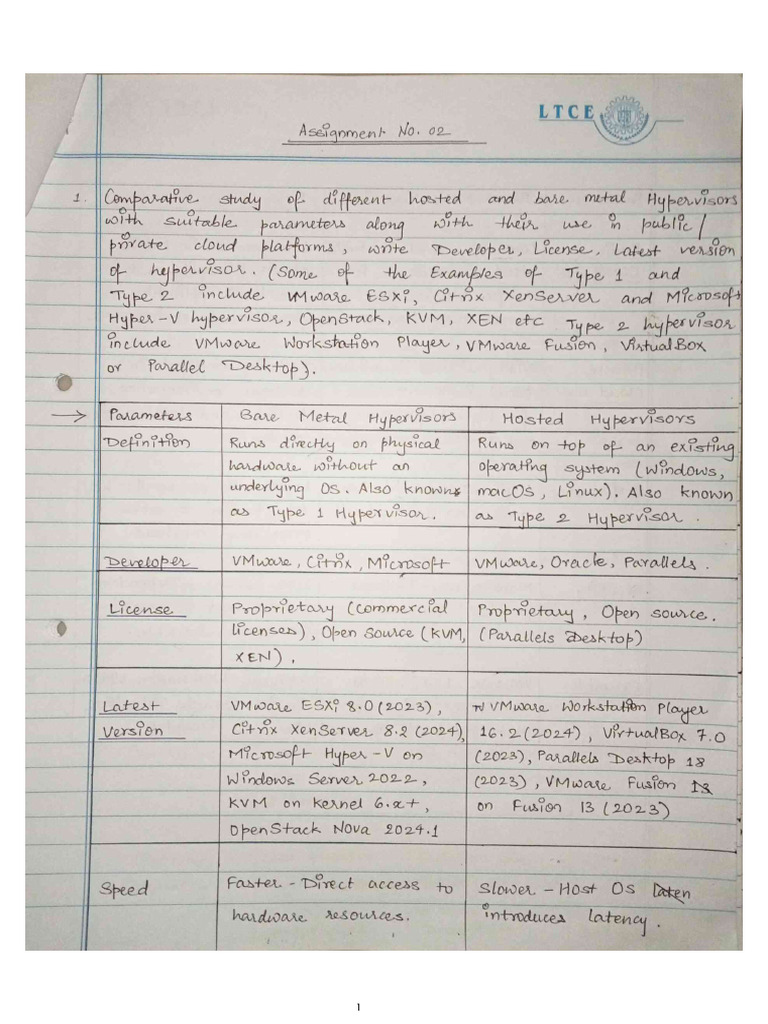 LTCE
Assignment No. 02
1. Comparative study of different hosted and bare metal Hypervisors
with suitable parameters along with their use in public/
private cloud platforms, write Developer, License, Latest version
of hypervisor. (Some of the Examples of Type 1 and
Type 2 include VMware ESXi, Citrix XenServer and Microsoft
Hyper-V hypervisor, OpenStack, KVM, XEN etc Type 2 hypervisor
include VMware Workstation Player, VMware Fusion, VirtualBox
or Parallel Desktop).
→ Parameters Bare Metal Hypervisors Hosted Hypervisors
Definition Runs directly on physical Runs on top of an existing
hardware without an operating system (Windows,
underlying OS. Also known macOS, Linux). Also known
as Type 1 Hypervisor. as Type 2 Hypervisor.
Developer VMware, Citrix, Microsoft VMware, Oracle, Parallels.
License Proprietary (commercial Proprietary, Open source.
licenses), Open Source (KVM, (Parallels Desktop)
XEN).
Latest VMware ESXi 8.0 (2023), VMware Workstation Player
Version Citrix XenServer 8.2 (2024), 16.2 (2024), VirtualBox 7.0
Microsoft Hyper-V on (2023), Parallels Desktop 18
Windows Server 2022, (2023), VMware Fusion
KVM on Kernel 6.x+, on Fusion 13 (2023)
OpenStack Nova 2024.1
Speed Faster - Direct access to Slower - Host OS
hardware resources. introduces latency.
1